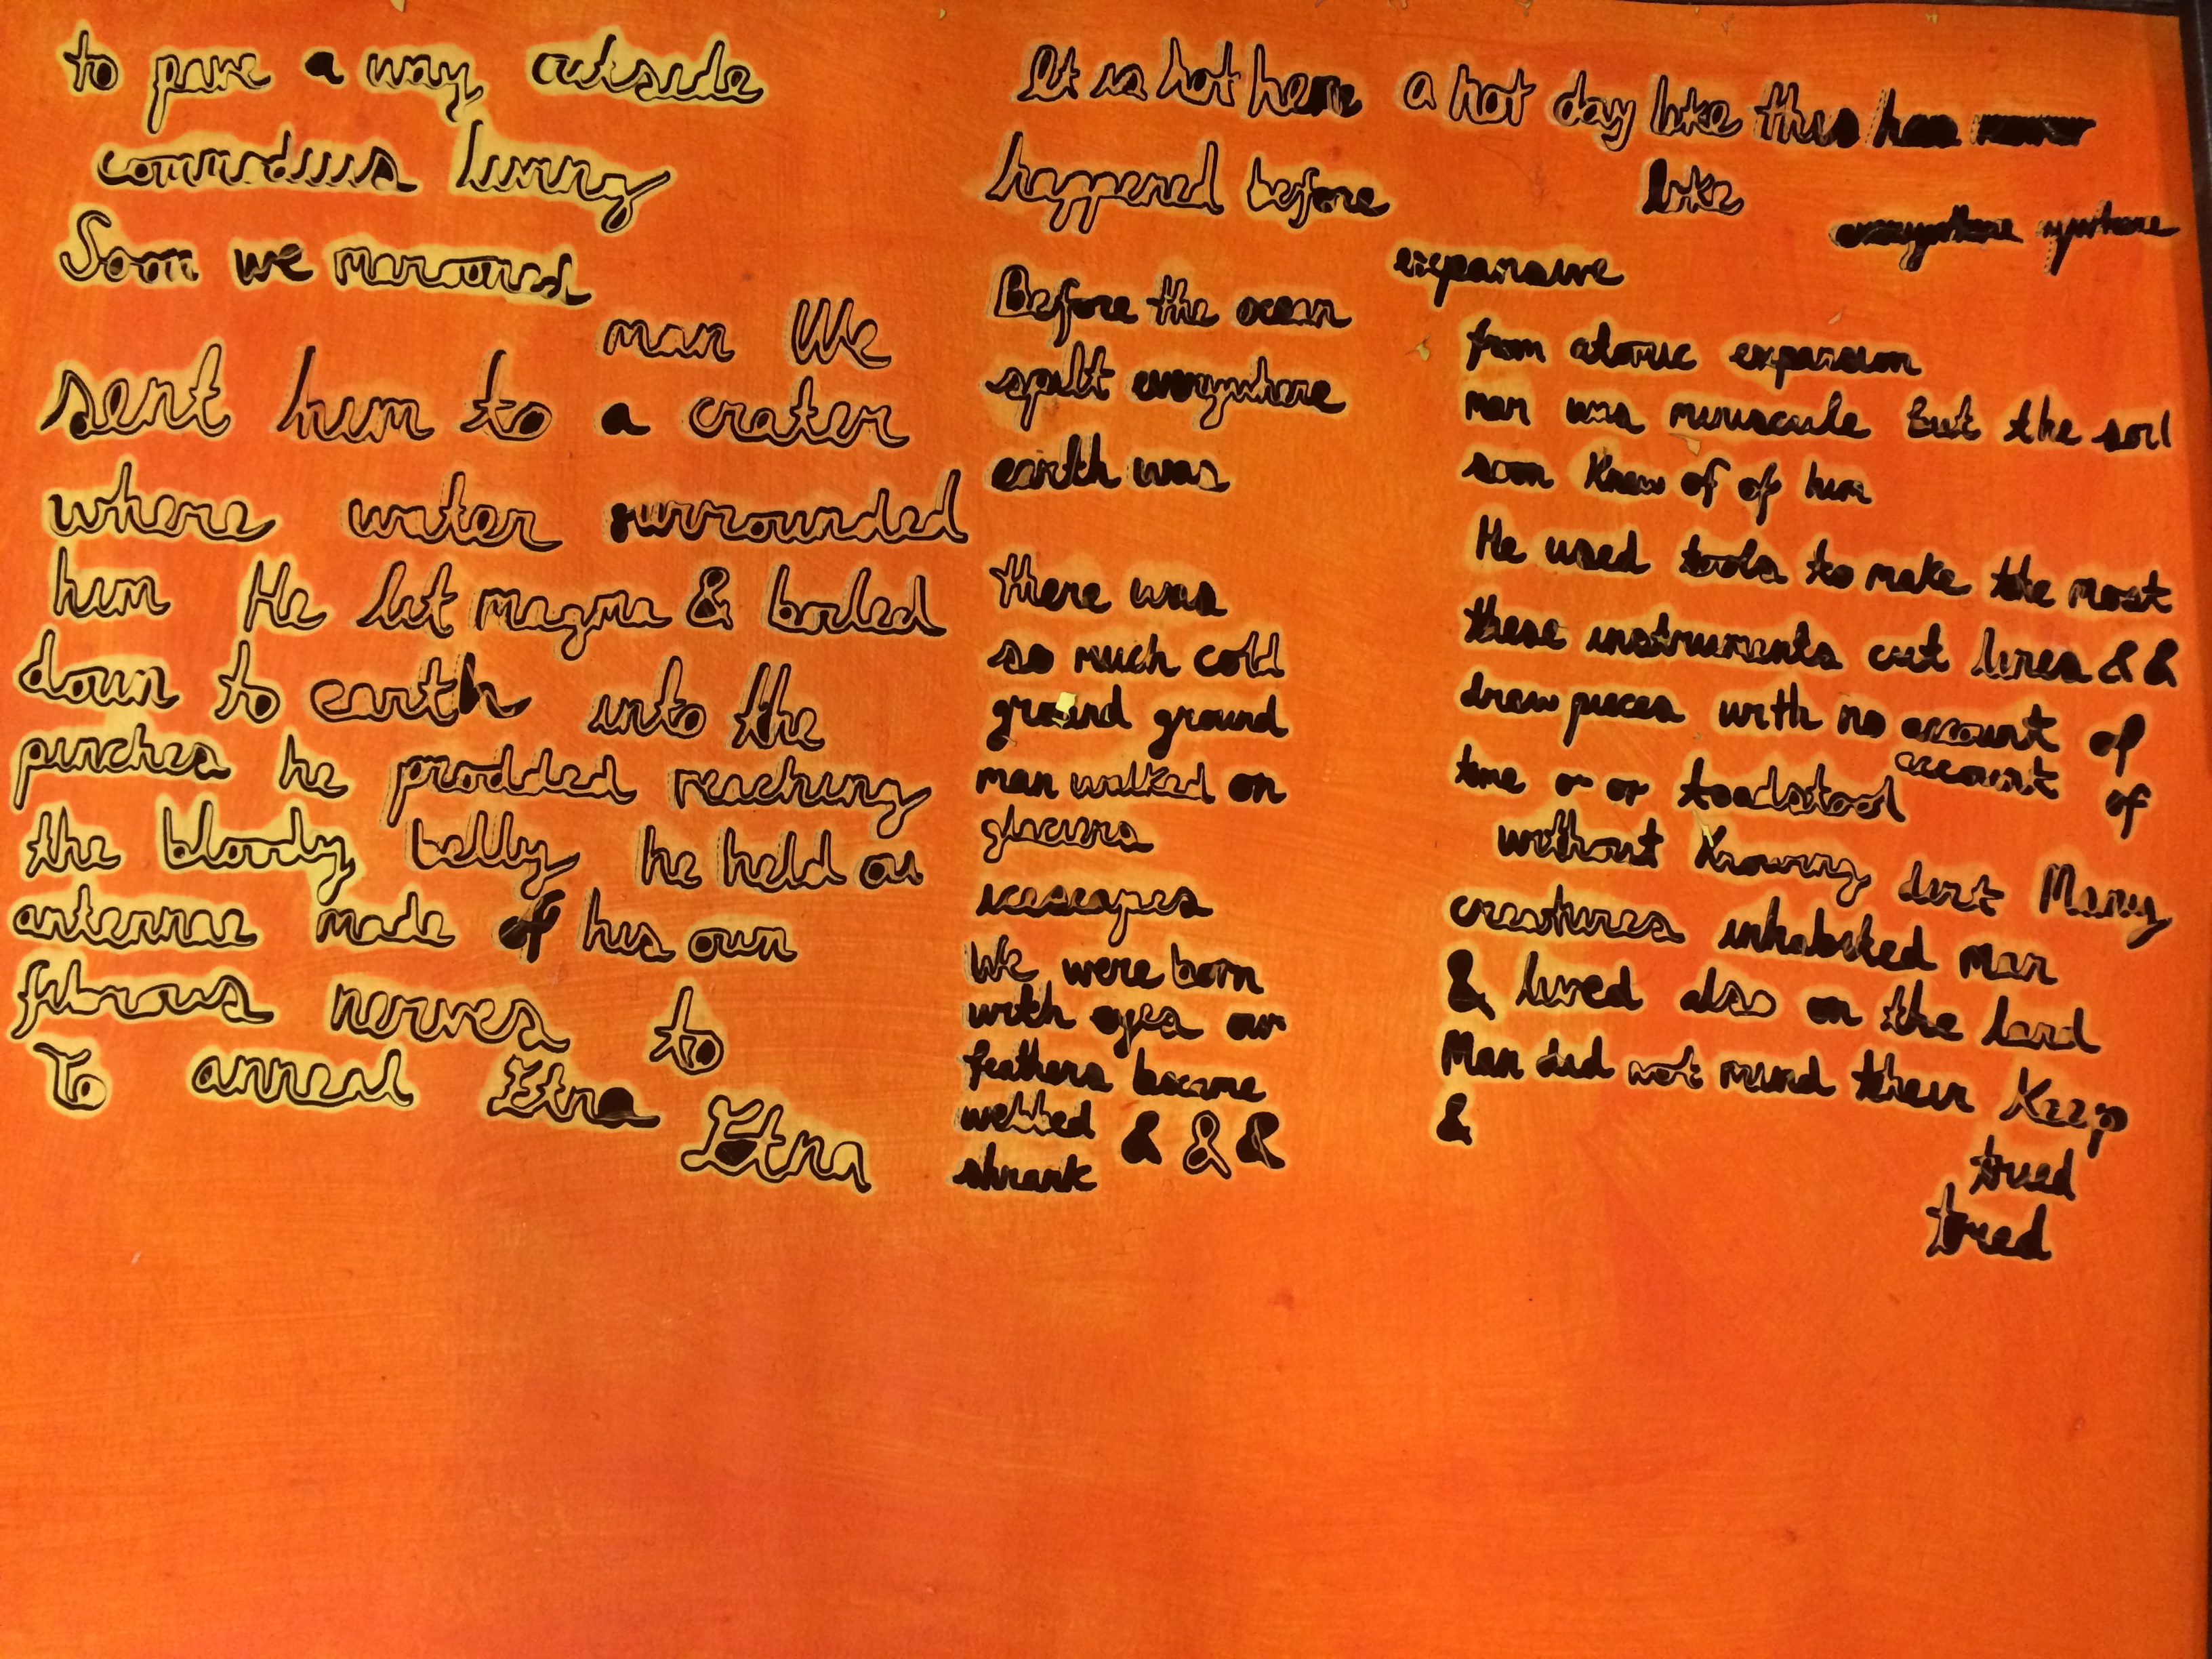 to pave a way outside
commodious living
Soon we marooned
man We
sent him to a crater
where water surrounded
him He lit magma & boiled
down to earth into the
pinches he prodded reaching
the bloody belly he held on
antennae made of his own
fibrous nerves to
To anneal Etna
Etna
It is hot here a hot day like this has never
happened before like
everywhere
Before the ocean
spilt everywhere
earth was
there was
so much cold
ground ground
man walked on
glaciers
icescapes
We were born
with eyes our
feathers became
webbed & & &
shrank
expansive
from atomic expansion
man was minuscule but the soil
soon knew of of him
He used tools to make the most
these instruments cut lines & &
drew pieces with no account of
account of
time or or toadstool
without knowing dirt Many
creatures inhabited man
& lived also on the land
Man did not mind their keep
&
tried
tried